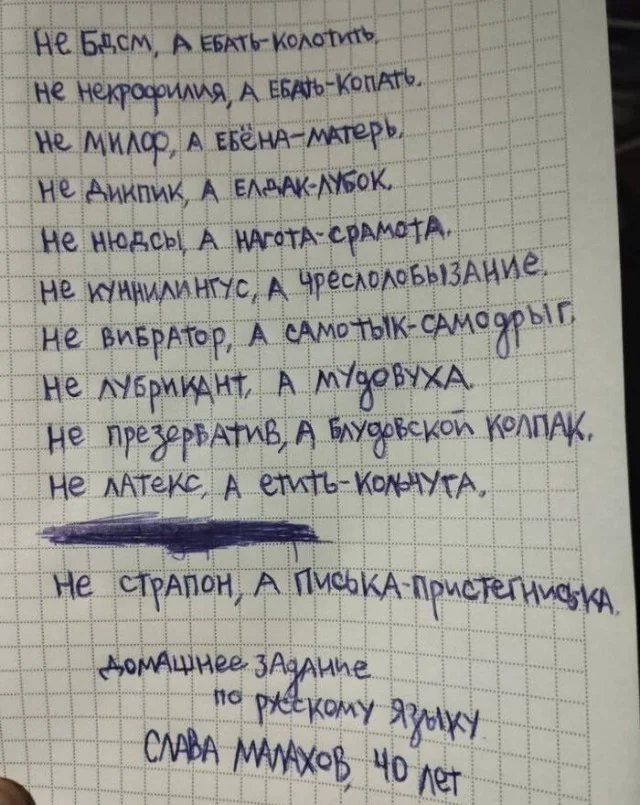 не БДСМ, А ЕБАТЬ-КОЛОТИТЬ.
не некрофилия, А ЕБАТЬ-КОПАТЬ.
не МИЛФ, А ЕБЁНА-МАТЕРЬ.
не дикпик, А ЕЛДАК-ЛУБОК.
не нюдсы, А НАГОТА-СРАМОТА.
не куннилингус, А чреслолобызание.
не вибратор, А самотык-самодрыг.
не лубрикант, А мудовуха.
не презерватив, А блудовской колпак.
не латекс, А етить-кольчуга.
не страпон, А писька-пристегниська.
домашнее задание
по русскому языку
СЛАВА МАЛАХОВ, 40 лет